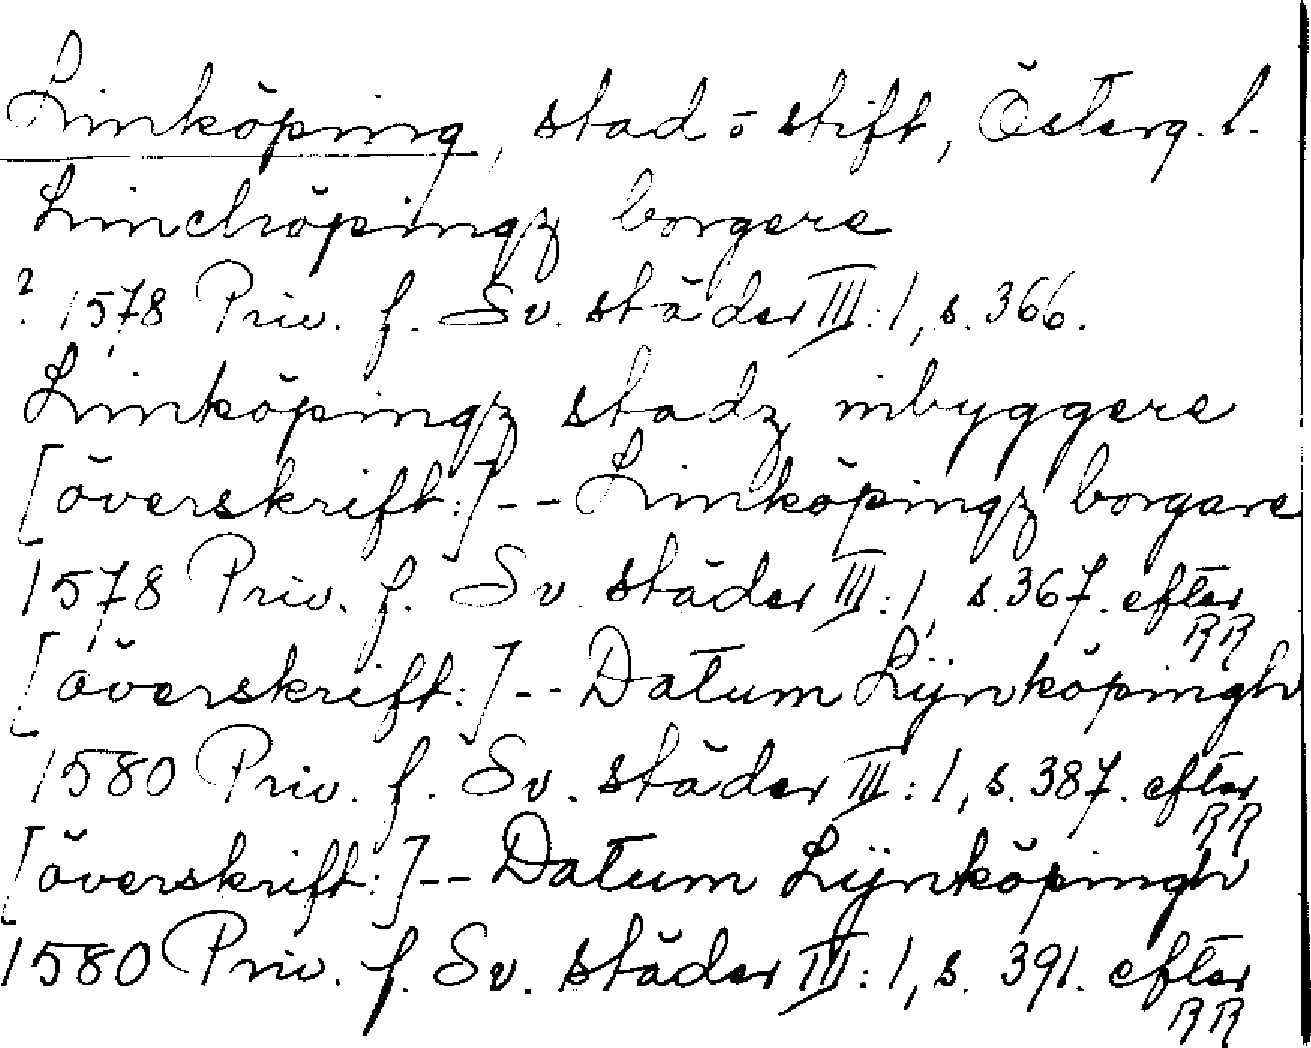 Linköping, stad o stift, Österg. l.
Linchöpingz borgere
? 1578 Priv. f. Sv. städer III:1, s. 366.
Linköpingz stadz inbyggere
[överskrift:] -- Linköpingz borgare
1578 Priv. f. Sv. städer III:1, s. 367. efter RR
[överskrift:] -- Datum Lÿnköpingh
1580 Priv. f. Sv. städer III:1, s. 387. efter RR
[överskrift:] -- Datum Lÿnköpingh
1580 Priv. f. Sv. städer III:1, s. 391. efter RR